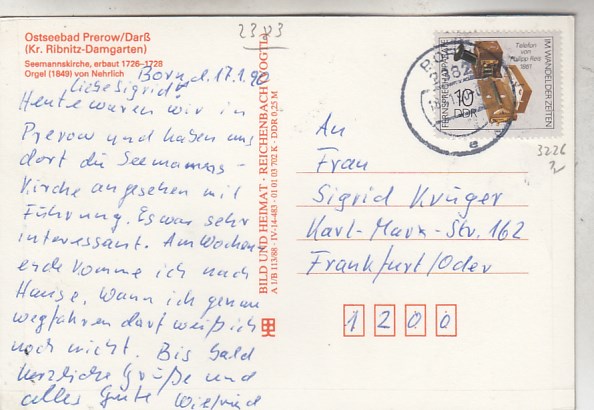 2383
Ostseebad Prerow/Darß
(Kr. Ribnitz-Damgarten)
Seemannskirche, erbaut 1726–1728
Orgel (1849) von Nehrlich
Born, d. 17.1.90
Liebe Sigrid!
Heute waren wir in
Prerow und haben uns
dort die Seemanns-
Kirche angesehen mit
Führung. Es war sehr
interessant. Am Wochen-
ende komme ich nach
Hause, wann ich genau
wegfahren darf weiß ich
noch nicht. Bis bald
herzliche Grüße und
alles Gute Wielfried
BILD UND HEIMAT · REICHENBACH (VOGTL)
A 1/B 113/88 · IV-14-483 · 01 01 03 702 K · DDR 0,25 M
Telefon
von
Philipp Reis
1861
IM WANDEL DER ZEITEN
10
DDR
3226
An
Frau
Sigrid Krüger
Karl-Marx-Str. 162
Frankfurt/Oder
1200